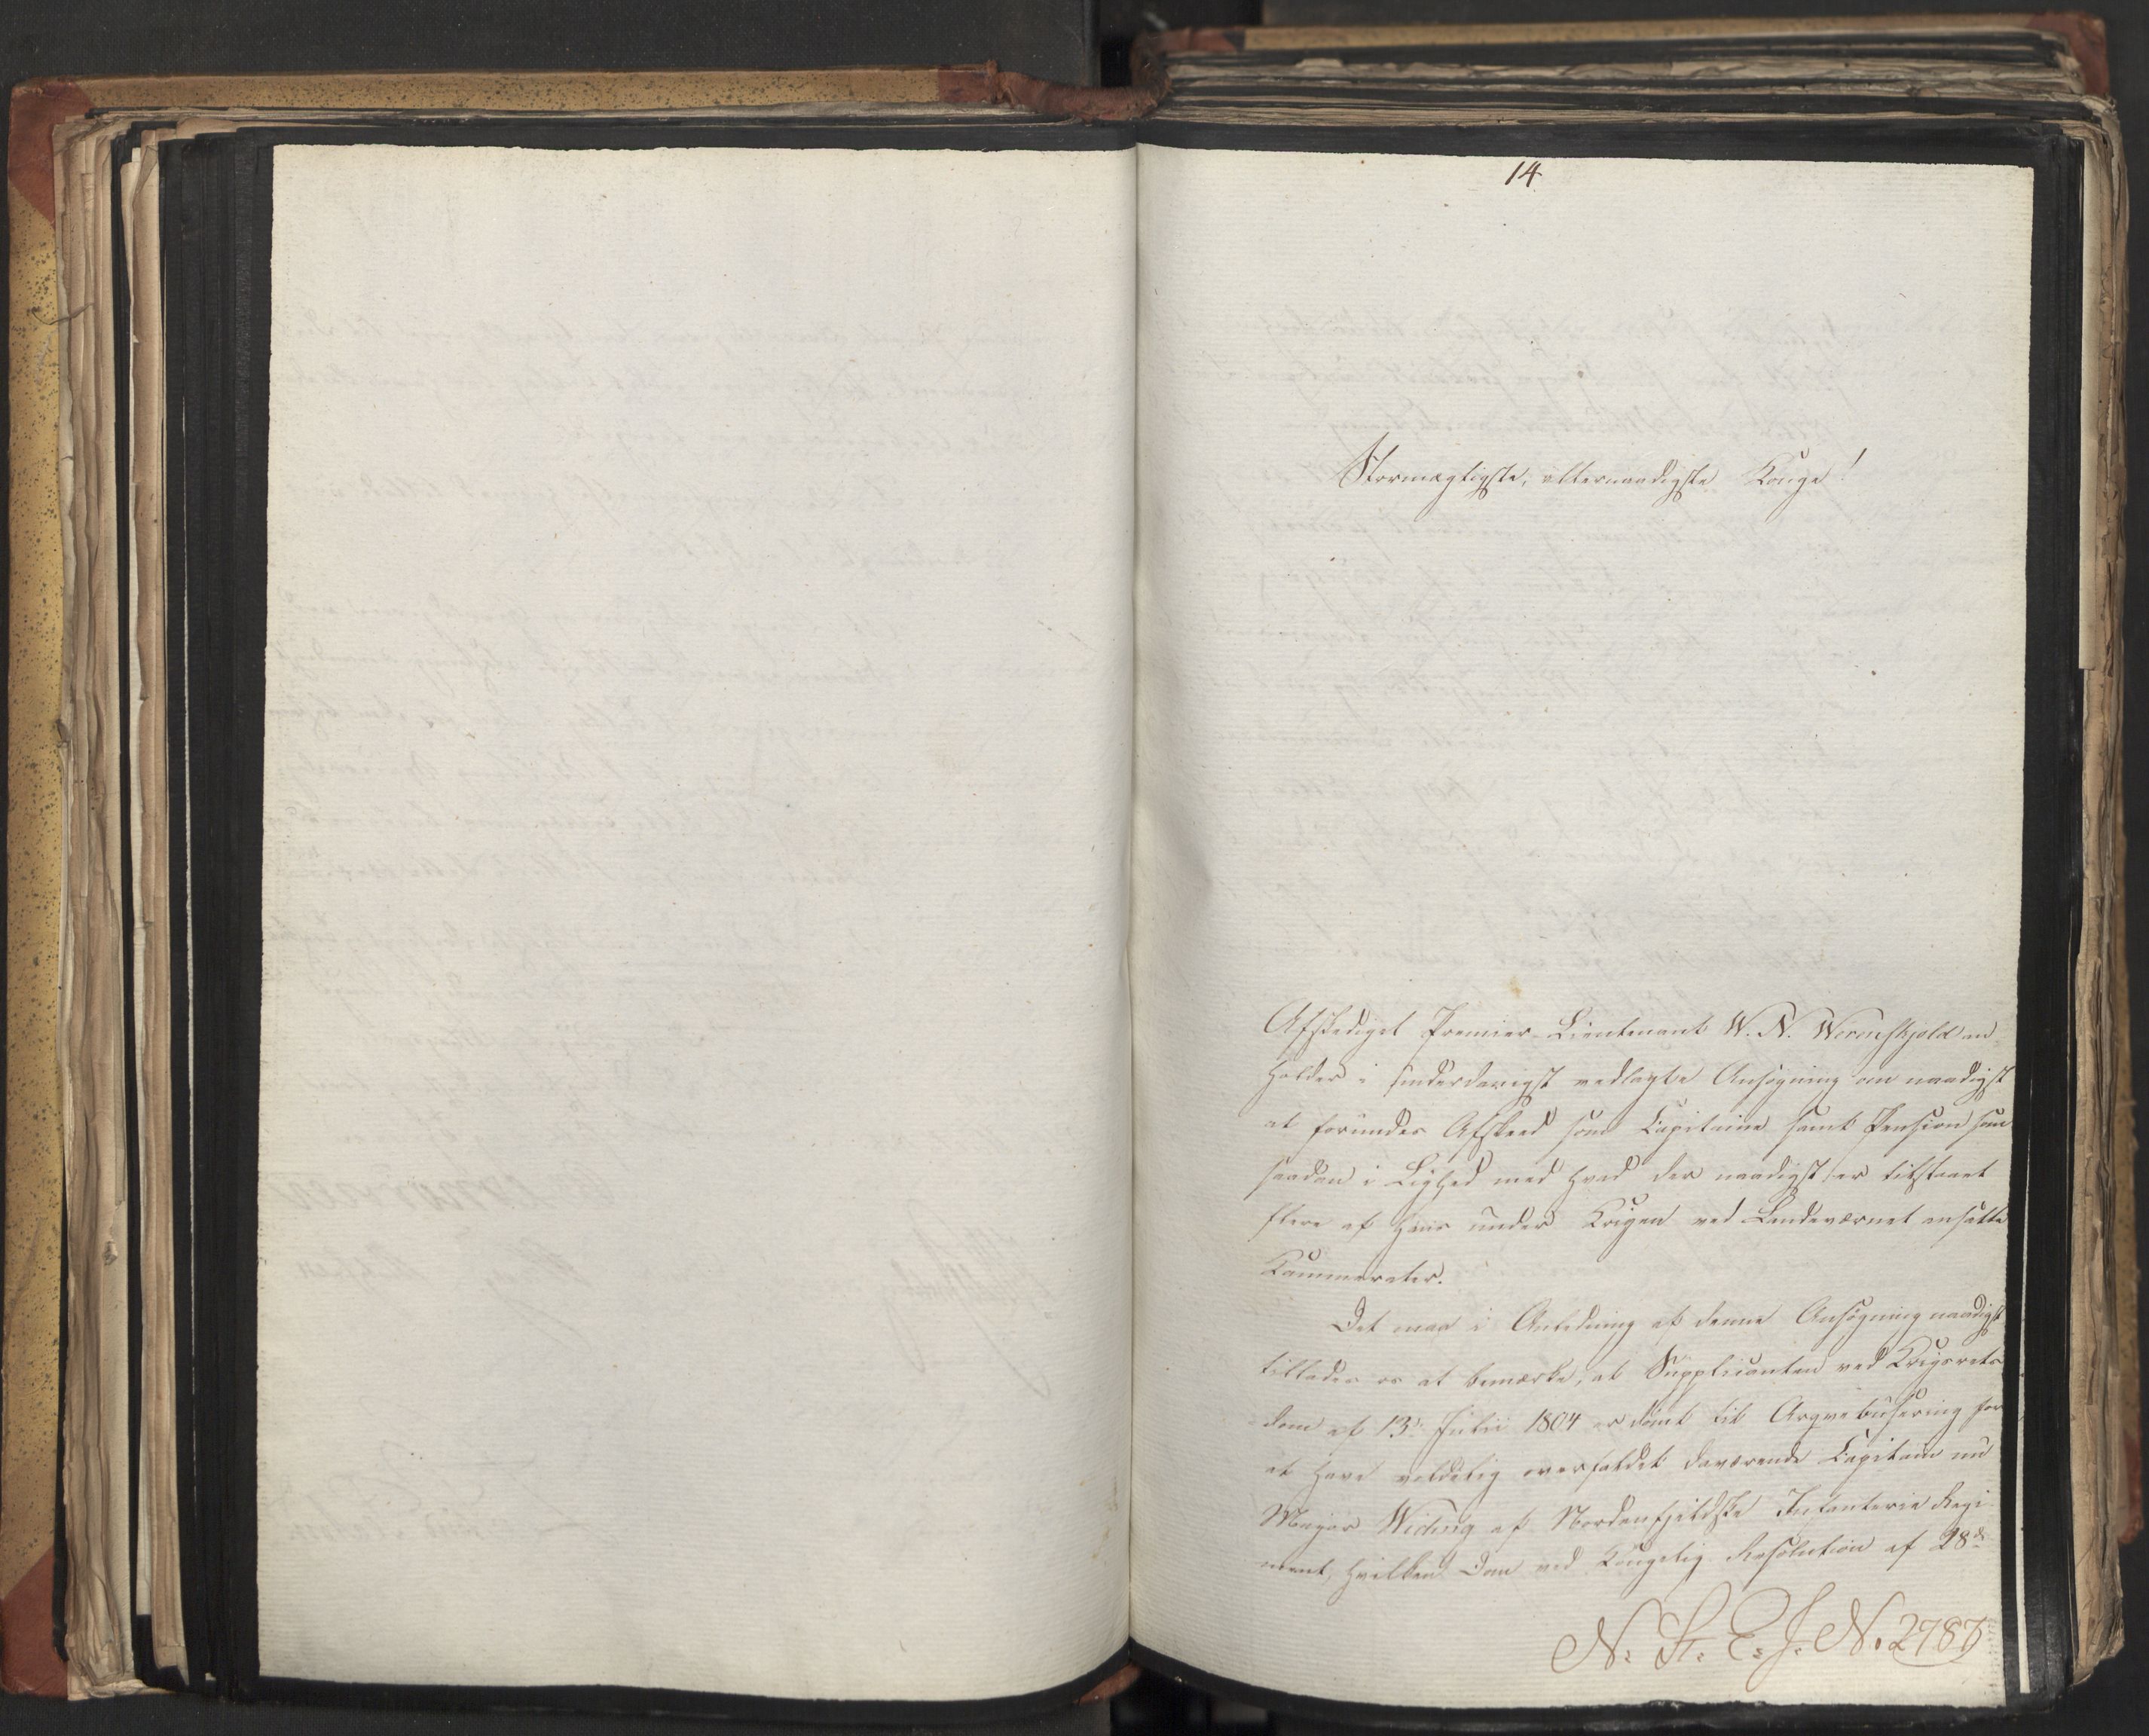 14
Stormægtigste, allernaadigste Konge!
Afskediget Premier-Lieutenant W. N. Wormskjold an-
holder i underdanigst vedlagte Ansøgning om naadigst
at forundes Afskeed som Capitaine samt Pension som
saadan i Lighed med hvad der naadigst er tilstaaet
flere af hans under Krigen ved Landeværnet ansatte
Kammerater.
Det maa i Anledning af denne Ansøgning naadigst
tillades os at bemærke, at Supplicanten ved Krigsrets
dom af 13de Julii 1804 er dømt til Arqvebusering for
at have voldelig overfaldet daværende Capitain nu
Major Wiching af Nordenfjeldske Infanterie Regi-
ment, hvilken Dom ved Kongelig Resolution af 28de
N. St. E. J. N. 2787